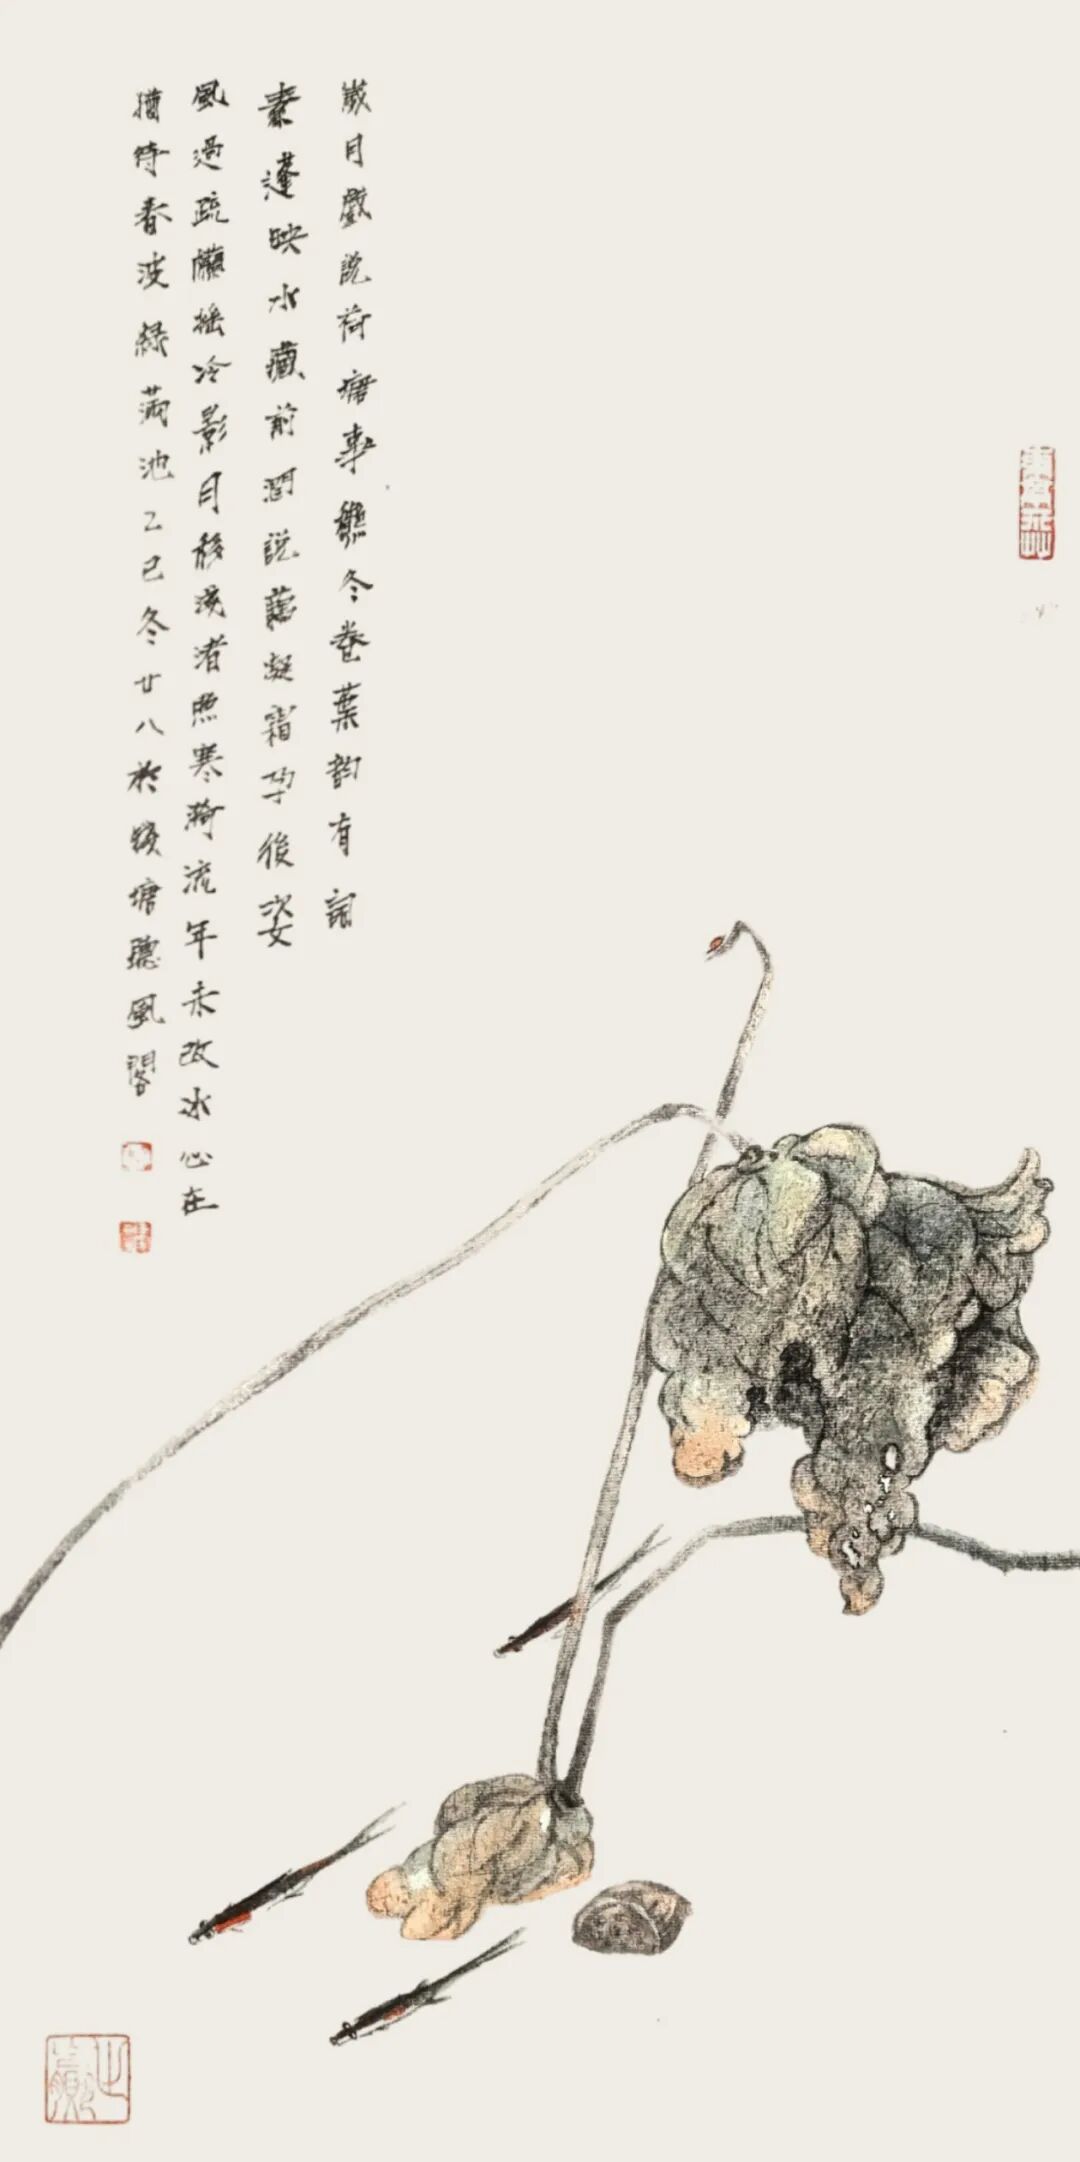 歲月戲説荷塘事冬卷葉韵有詞
素蓬映水藏前潤説藕凝霜孕後姿
風過疏搖冷影月移淺渚照寒漪流年未改冰心在
猶待春波緑滿池乙巳冬廿八於錢塘聽風閣